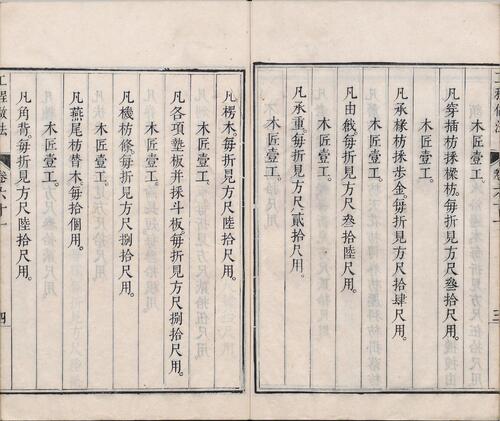 凡穿插枋採樑枋。每折見方尺叄拾尺用。
木匠壹工。
凡承椽枋採步金。每折見方尺拾肆尺用。
木匠壹工。
凡由戧。每折見方尺叄拾陸尺用。
木匠壹工。
凡承重。每折見方尺貳拾尺用。
木匠壹工。
三
凡楞木。每折見方尺陸拾尺用。
木匠壹工。
凡各項墊板并採斗板。每折見方尺捌拾尺用。
木匠壹工。
凡機枋條。每折見方尺捌拾尺用。
木匠壹工。
凡燕尾枋替木。每拾個用。
木匠壹工。
凡角背。每折見方尺陸拾尺用。
工程做法
卷六十一
四